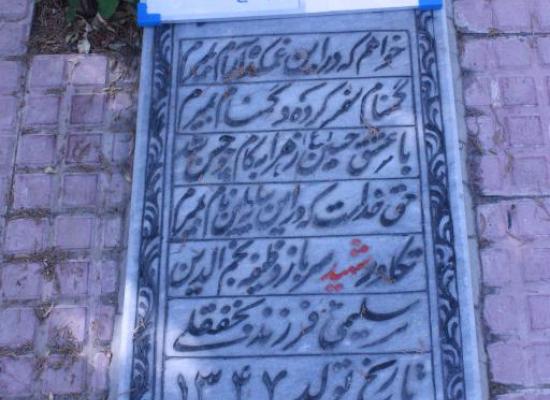 خواهم که در این غمکده آرام بمیرم
گمنام سفر کرده و گمنام بمیرم
با عشق حسین زهر ار کام چو حسن شد
حق خداست که در این نام بمیرم
تکاور شهید سرباز وظیفه نجم الدین
سلیمی فرزند نجفقلی
تاریخ تولد ۱۳۴۷